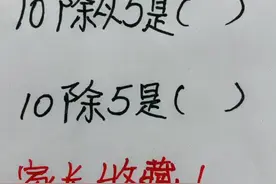 10除以5是( )
10除5是( )
家长收藏！